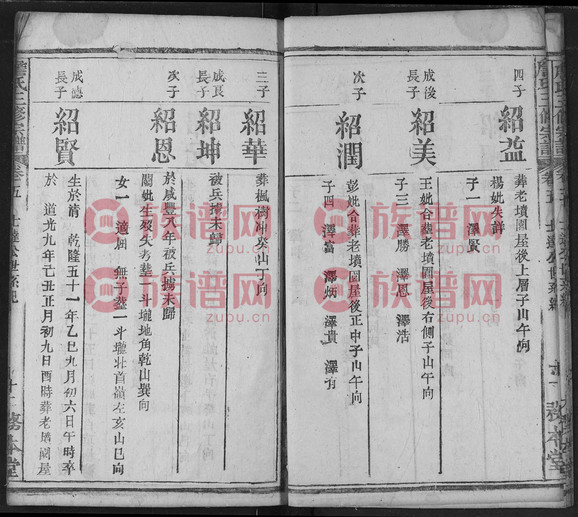 四子
紹益
葬老墳圍屋後上層子山午向
楊妣失詳
子一 澤賢
成後
長子
紹美
王妣合葬老墳圍屋後右側子山午向
子三 澤勝 澤恩 澤浩
次子
紹潤
彭妣合葬老墳圍屋後正中子山午向
子四 澤富 澤炳 澤貴 澤有
三子
紹華
葬楓樹冲癸山丁向
成良
長子
紹坤
被兵擄未歸
次子
紹恩
於咸豐八年被兵擄未歸
關妣生歿失考葬一斗壠地角乾山巽向
女一 適屈 無子葬一斗壠
成德
長子
紹賢
生於前 乾隆五十一年乙巳九月初六日午時卒
於 道光九年己丑正月初九日酉時葬老墳圍屋
務本堂
族谱网
zupu.cn
族谱网
zupu.cn
族谱网
zupu.cn
族谱网
zupu.cn